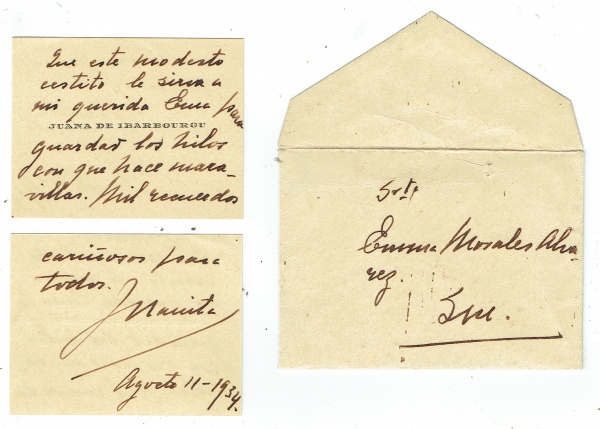 Que este modesto
cestito le sirva a
mi querida Ema para
JUANA DE IBARBOUROU
guardar los hilos
con que hace mara-
villas. Mil recuerdos
cariñosos para
todos.
Juanita
Agosto 11-1934.
Srta
Emma Morales Alva-
rez.
S/m.